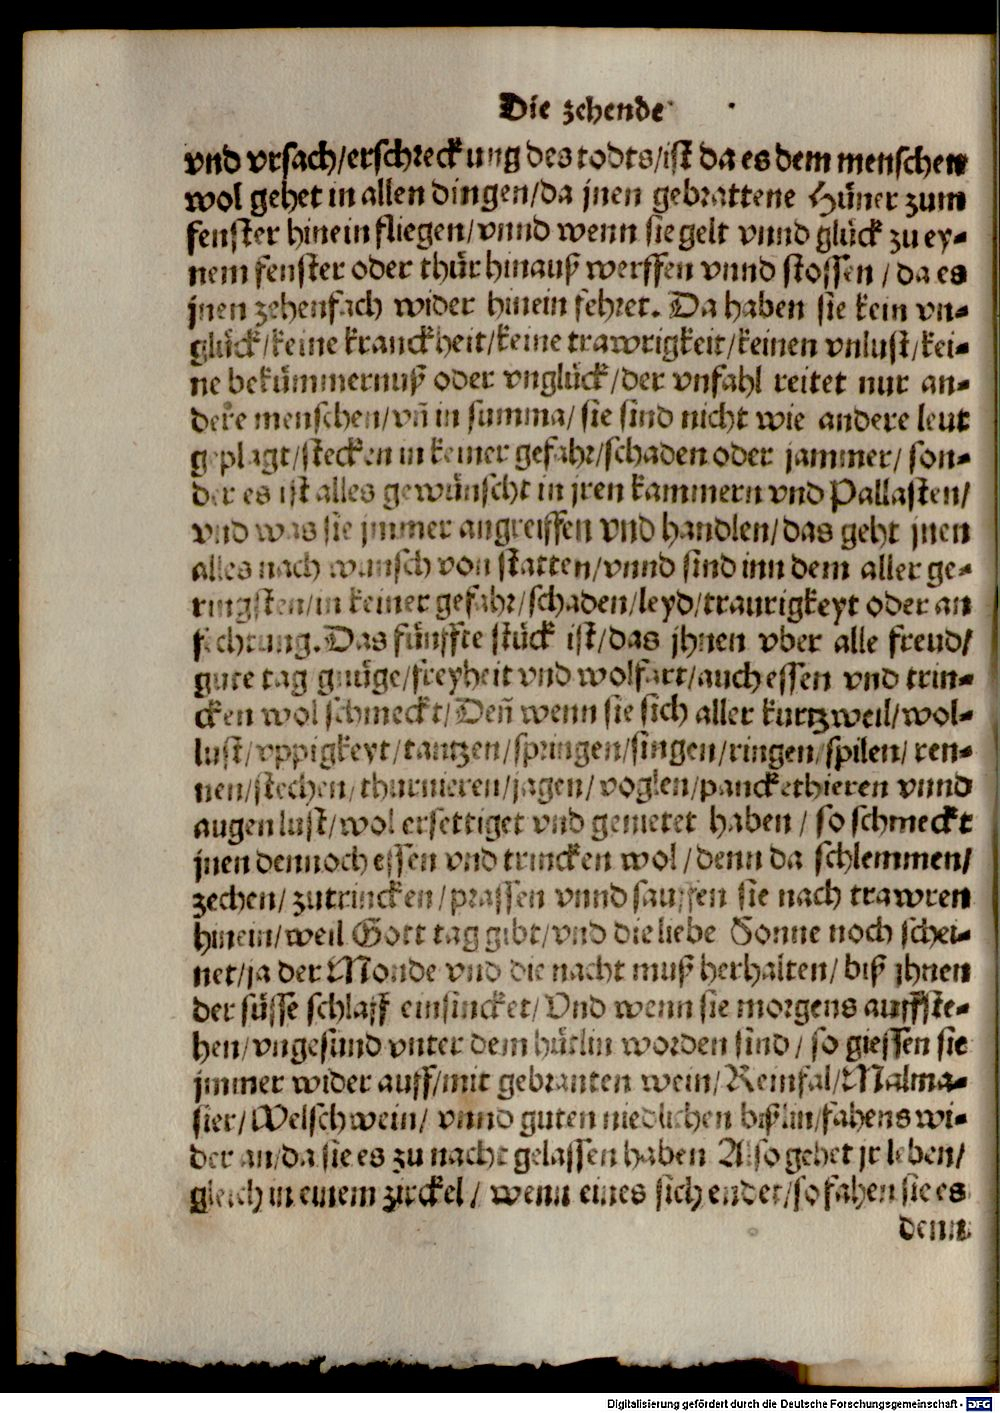 Die zehende
vnd vrsach/erschreckung des todts/ist da es dem menschen
wol gehet in allen dingen/da jnen gebrattene Hüner zum
fenster hinein fliegen/vnnd wenn sie gelt vnnd glück zu ey-
nem fenster oder thür hinauß werffen vnnd stossen / da es
jnen zehenfach wider hinein fehret. Da haben sie kein vn-
glück/keine kranckheit/keine trawrigkeit/keinen vnlust/kei-
ne bekümmernuß oder vnglück/der vnfahl reitet nur an-
dere menschen/vñ in summa/ sie sind nicht wie andere leut
geplagt/stecken in keiner gefahr/schaden oder jammer/ son-
der es ist alles gewünscht in jren kammern vnd Pallasten/
vnd was sie jmmer angreiffen vnd handlen/das geht jnen
alles nach wunsch von statten/vnnd sind inn dem aller ge-
ringsten/in keiner gefahr/schaden/leyd/traurigkeyt oder an
fechtung. Das fünffte stück ist/das jhnen vber alle freud/
gute tag gnüge/freyheit vnd wolfart/auch essen vnd trin-
cken wol schmeckt/Deñ wenn sie sich aller kurtzweil/wol-
lust/vppigkeyt/tantzen/springen/singen/ringen/spilen/ ren-
nen/stechen/thurnieren/jagen/voglen/panckethieren vnnd
augenlust/wol ersettiget vnd genietet haben / so schmeckt
jnen dennoch essen vnd trincken wol/denn da schlemmen/
zechen/ zutrincken/prassen vnnd sauffen sie nach trawren
hinein/weil Gott tag gibt/vnd die liebe Sonne noch schei-
net/ja der Monde vnd die nacht muß herhalten/ biß jhnen
der süsse schlaff einsincket/Vnd wenn sie morgens auffste-
hen/vngesund vnter dem hütlin worden sind / so giessen sie
jmmer wider auff/mit gebranten wein/Reinfal/Malma-
sier/Welschwein/ vnnd guten niedlichen bißlin/fahens wi-
der an/da sie es zu nacht gelassen haben Also gehet jr leben/
gleich in einem zirckel / wenn eines sich endet/so fahen sie es
denn
Digitalisierung gefördert durch die Deutsche Forschungsgemeinschaft - DFG